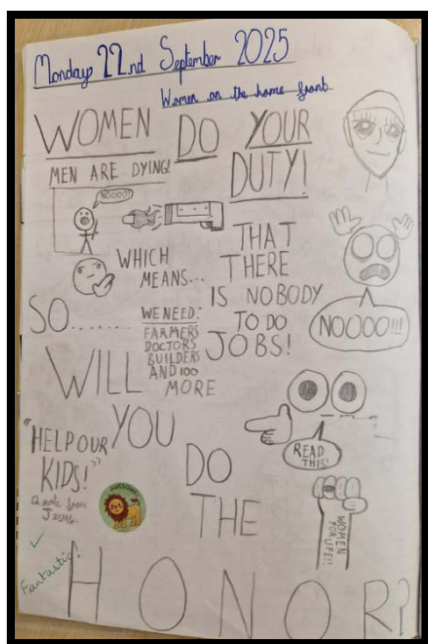 Monday 22nd September 2025
Women on the home front
WOMEN DO YOUR
DUTY!
MEN ARE DYING!
NOOOO!
WHICH
MEANS...
THAT
THERE
IS NOBODY
TO DO
JOBS!
NOOOO!!!
SO........
WE NEED:
FARMERS
DOCTORS
BUILDERS
AND 100
MORE
WILL
YOU
DO
THE
HONOR?
READ
THIS!
"HELP OUR
KIDS!"
a note from
Jesus
AWESOME!
WOMEN
FOR LIFE!!
✓
Fantastic!